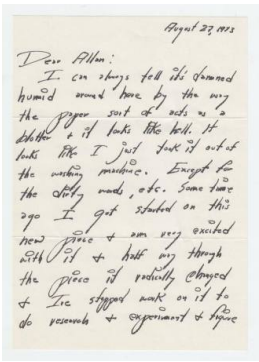 August 27, 1973
Dear Allan:
I can always tell it's damned
humid around here by the way
the paper sort of acts as a
blotter & it looks like hell. It
looks like I just took it out of
the washing machine. Except for
the dirty words, etc. Some time
ago I got started on this
new piece & am very excited
with it & half way through
the piece it radically changed
& I've stopped work on it to
do research & experiment & figure